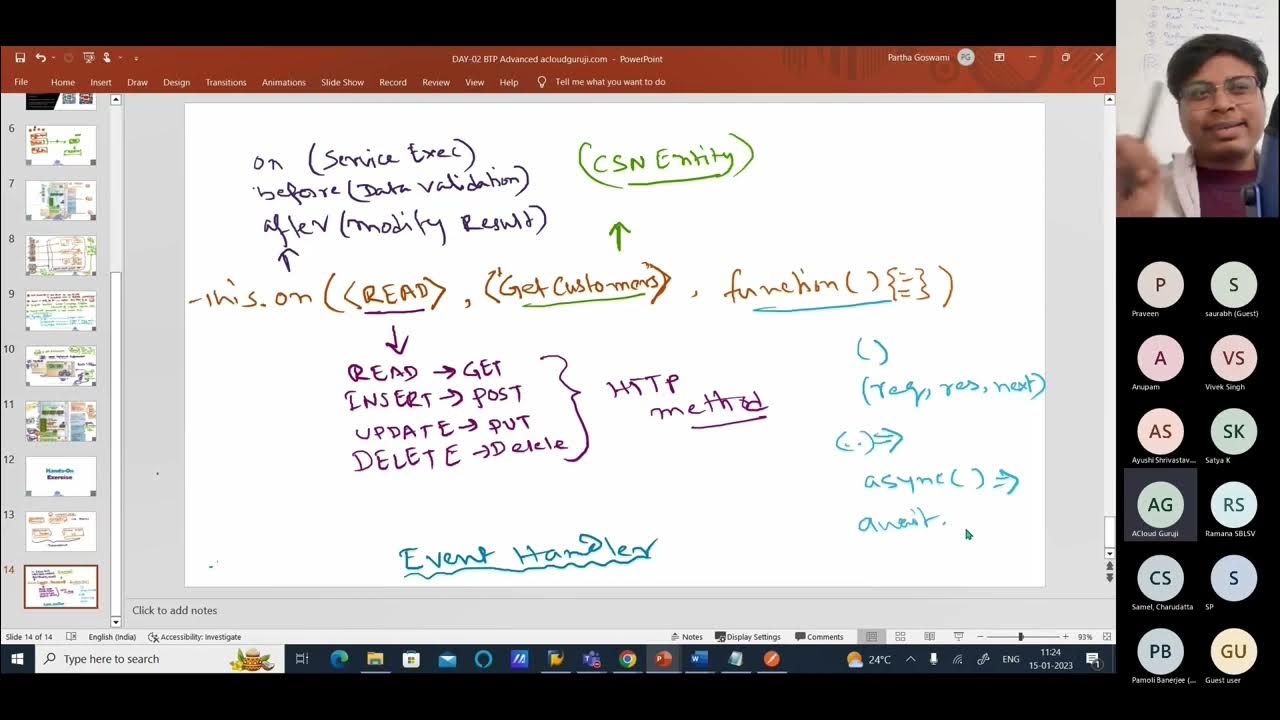 DAY-02 BTP Advanced acloudguruji.com - PowerPoint
Partha Goswami
PG
File Home Insert Draw Design Transitions Animations Slide Show Record Review View Help Tell me what you want to do
6
7
8
9
10
11
12
Hands-On
Exercise
13
14
on (Service Exec)
before (Data Validation)
after (Modify Result)
(CSN Entity)
this.on (<READ>, <"GetCustomers">, function(){ })
READ → GET
INSERT → POST
UPDATE → PUT
DELETE → Delete
HTTP
method
()
(req, res, next)
(..) =>
async() =>
await.
Event Handler
Click to add notes
Slide 14 of 14 English (India) Accessibility: Investigate Notes Display Settings Comments 93%
Type here to search
24°C ENG 11:24
15-01-2023
1
P S
Praveen saurabh (Guest)
A VS
Anupam Vivek Singh
AS SK
Ayushi Shrivastav... Satya K
AG RS
ACloud Guruji Ramana SBLSV
CS S
Samel, Charudatta SP
PB GU
Pamoli Banerjee (... Guest user